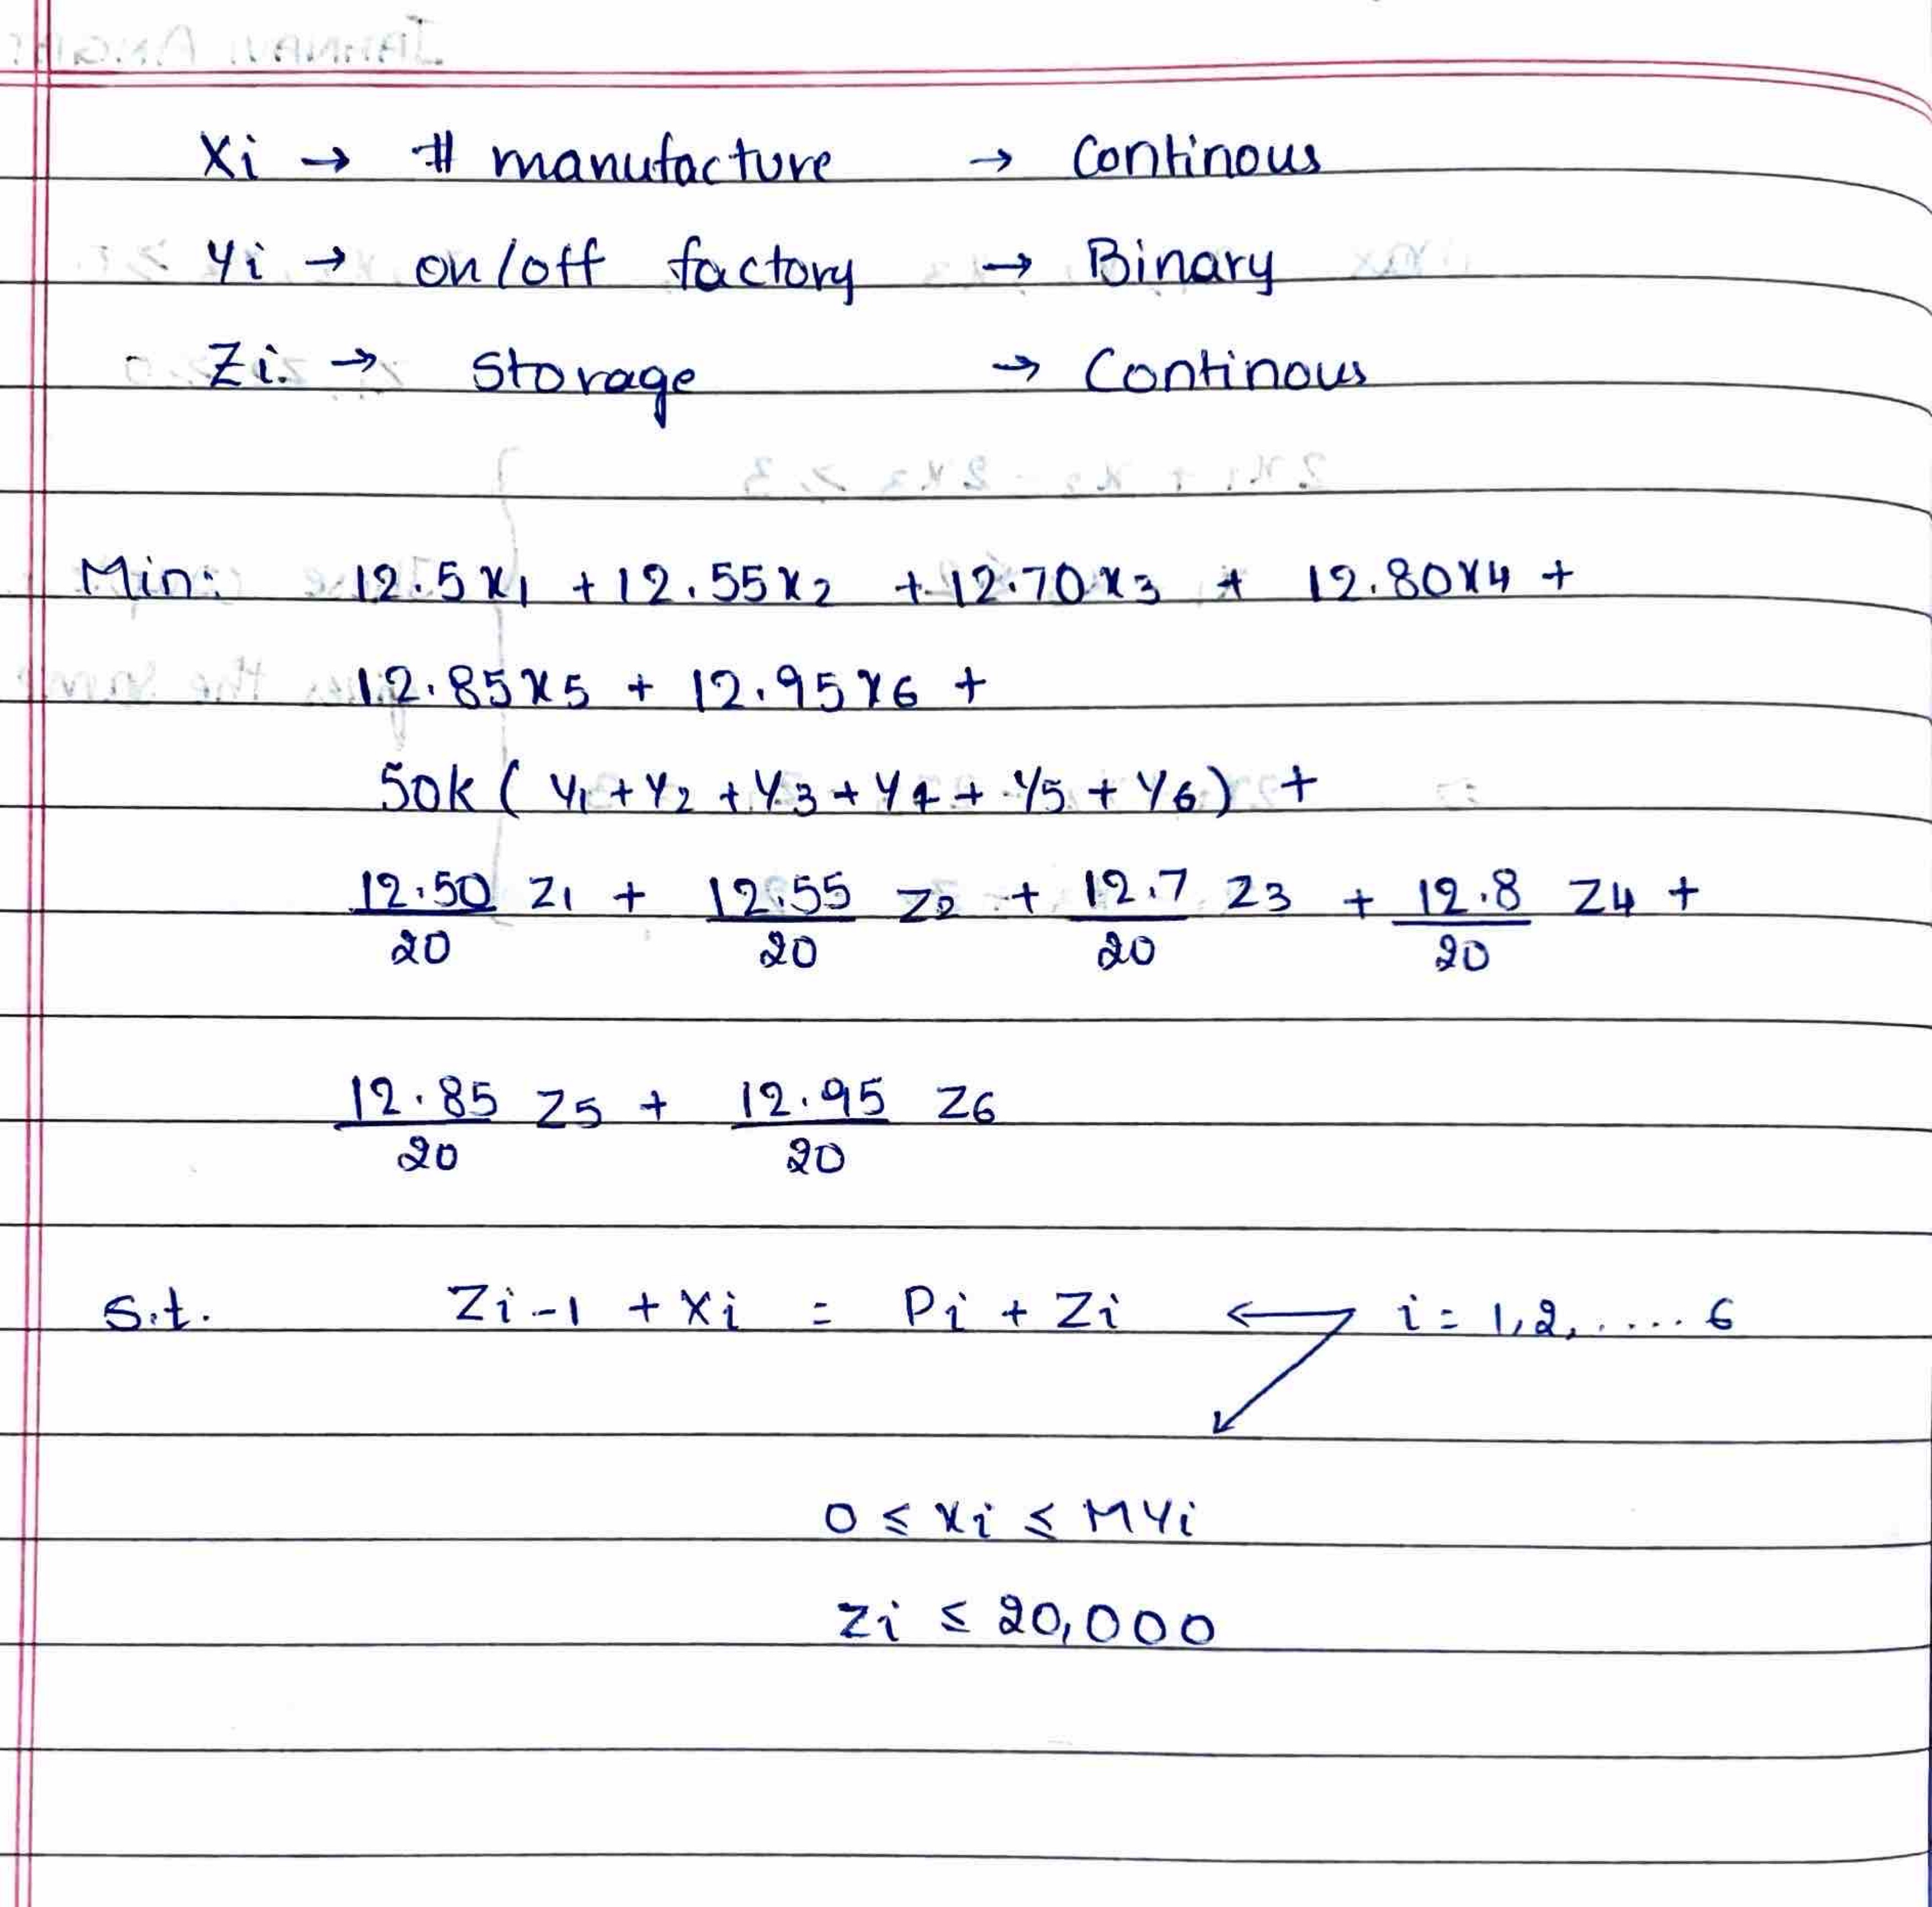 Xi → # manufacture → Continous
Yi → on/off factory → Binary
Zi. → Storage → Continous
Min: 12.5x1 + 12.55x2 + 12.70x3 + 12.80x4 +
12.85x5 + 12.95x6 +
50k ( Y1 + Y2 + Y3 + Y4 + Y5 + Y6 ) +
12.50/20 Z1 + 12.55/20 Z2 + 12.7/20 Z3 + 12.8/20 Z4 +
12.85/20 Z5 + 12.95/20 Z6
S.t. Zi-1 + Xi = Pi + Zi ← i = 1,2, .... 6
0 ≤ xi ≤ MYi
Zi ≤ 20,000